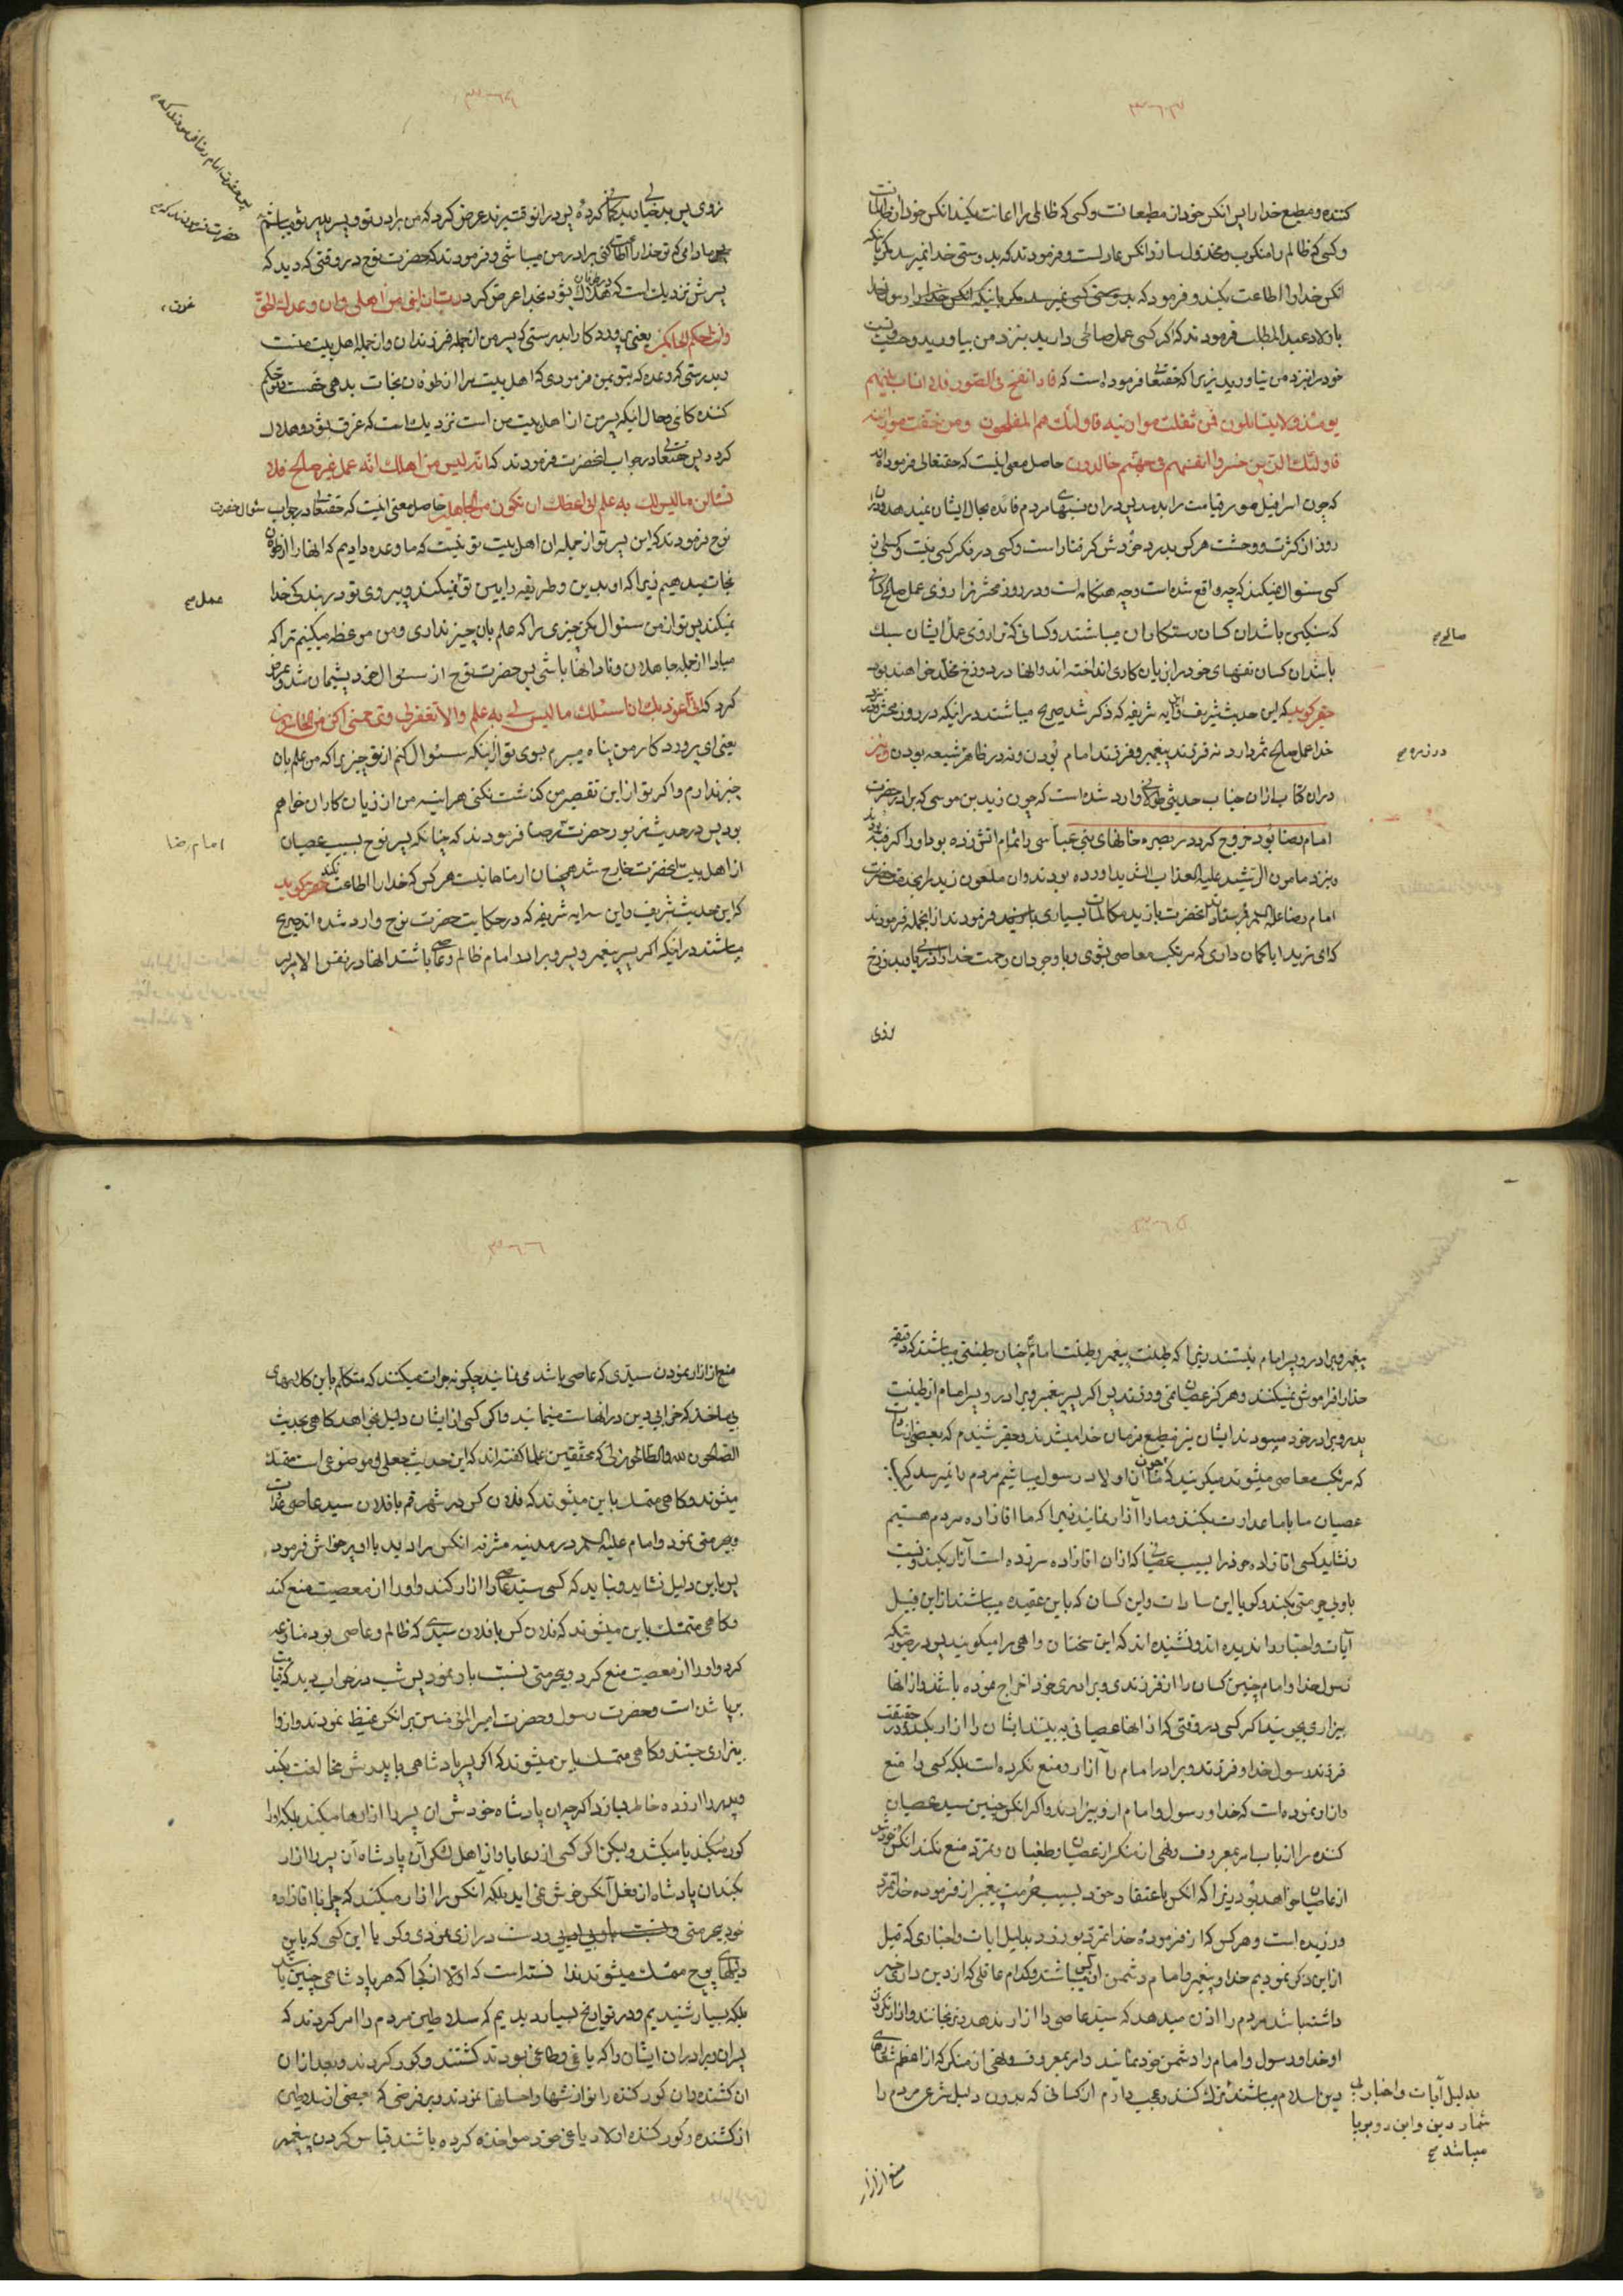 کننده و مطیع خدا را پس انکس خود از مطیعانست و کسی که ظالمی را اعانت بکند انکس خود از ظالمانست
و کسی که ظالم را منکوب و مخذول سازد انکس عادلست و فرمودند که بدوستی خدا نمیرسد مکر بانکه
انکس خدا را اطاعت بکند و فرمود که بدوستی کسی نمیرسد مکر بانیکه انکس خدا را رسول خدا
باولاد عبدالمطلب فرمودند که اکر کسی عمل صالحی دارید بنزد من بیاورید و حسب و نسب
خود را بنزد من نیاورید زیرا که حقتعالی فرموده است که فاذا نفخ فی الصور فلا انساب بینهم
یومئذ ولا یتسائلون فمن ثقلت موازینه فاولئک هم المفلحون ومن خفت موازینه
فاولئک الذین خسروا انفسهم فی جهنم خالدون حاصل معنی اینست که حقتعالی فرموده اند
که چون اسرافیل صور قیامت را بدمد پس دران نسبتهای مردم فائده بحال ایشان نمیدهد و دران
روز از کثرت و وحشت هر کس بدرد خودش کرفتار است و کسی در فکر کسی نیست و کسی از
کسی سئوال نمیکند که چه واقع شده است و چه هنکامه است و در روز محشر ترازوی عمل صالح کسانی
که سنکین باشد ان کسان رستکاران میباشند و کسانی که ترازوی عمل ایشان سبک
صالح
باشد ان کسان نفسهای خود را بزیان کاری انداخته اند و انها در دوزخ مخلد خواهند بود
حقیر کوید که این حدیث شریف و آیه شریفه که ذکر شد صریح میباشند در اینکه در روز محشر نزد
خدا عمل صالح ثمر دارد نه فرزند پیغمبر و فرزند امام بودن و نه در ظاهر شیعه بودن و نیز
در زمره
دران کتاب ازان جناب حدیثی طولانی وارد شده است که چون زید بن موسی که برادر حضرت
امام رضا بود خروج کرد در بصره خانهای بنی عباسی را تمام اتش زده بود او را کرفته بودند
و بنزد مامون الرشید علیه العذاب الشدید اورده بودند و ان ملعون زید را بخدمت حضرت
امام رضا علیه السلام فرستاد انحضرت با زید مکالمات بسیاری فرمودند از انجمله فرمودند
که ای زید ایا کمان داری که مرتکب معاصی بشوی و با وجود ان رحمت خدا را دریابی و بدوزخ
نروی
پس حضرت امام رضا فرمودند که
نروی پس بد خیالی و بد کمانی کرده پس دران وقت زید عرض کرد که من برادر تو و پسر پدر تو میباشم
حضرت فرمودند که
مادامی که تو خدا را اطاعت کنی برادر من میباشی و فرمودند که حضرت نوح در وقتی که دید که
پسرش نزدیک است که هلاک بشود بخدا عرض کرد رب ان ابنی من اهلی وان وعدک الحق
غرق
وانت احکم الحاکمین یعنی ای پروردکارا بدرستی که پسر من از جمله فرزندان و از جمله اهل بیت منست
و بدرستی که وعده که بتو بمن فرمودی که اهل بیت مرا از طوفان نجات بدهی حق است و تو حکم
کننده کانی و حال اینکه پسر من از اهل بیت من است نزدیک است که غرق بشود و هلاک
کردد پس حقتعالی در جواب انحضرت فرمودند که انه لیس من اهلک انه عمل غیر صالح فلا
تسئلن ما لیس لک به علم انی اعظک ان تکون من الجاهلین حاصل معنی اینست که حقتعالی در جواب سئوال حضرت
نوح فرمودند که این پسر تو از جمله ان اهل بیت تو نیست که ما وعده دادیم که انها را از طوفان
نجات میدهیم زیرا که او بدین و طریقه و ایین تو نمیکند و پیروی تو در بندکی خدا
عمل
نمیکند پس تو از من سئوال مکن چیزی را که علم بان چیز نداری و من موعظه میکنیم ترا که
مبادا از جمله جاهلان و نادانها باشی پس حضرت نوح از سئوال خود پشیمان شد و عرض
کرد که انی اعوذ بک ان اسئلک ما لیس لی به علم والا تغفر لی وترحمنی اکن من الخاسرین
یعنی ای پروردکار من پناه میبرم بسوی تو از اینکه سئوال کنم از تو چیزیرا که من علم بان
چیز ندارم و اکر تو از این تقصیر من کذشت نکنی هراینه من از زیان کاران خواهم
بود پس در حدیث مزبور حضرت رضا فرمودند که چنانکه پسر نوح بسبب عصیان
امام رضا
از اهل بیت انحضرت خارج شد همچنان از ما ها نیست هر کس که خدا را اطاعت نکند حقیر کوید
که این حدیث شریف و این سه آیه شریفه که در حکایت حضرت نوح وارد شده اند صریح
میباشند در اینکه اکر پسر پیغمبر و پسر و برادر امام ظالم و عاصی باشند انها در نفس الامر پسر
پیغمبر و برادر و پسر امام نیستند زیرا که طینت پیغمبر و طینت امام چنان طینتی میباشند که دقیقه
خدا را فراموش نمیکنند و هرکز عصیان نمی ورزند پس اکر پسر پیغمبر و برادر و پسر امام از طینت
پدر و برادر خود میبودند ایشان نیز مطیع فرمان خدا میشدند و حقیر شنیدم که بعضی از سادات
که مرتکب معاصی میشوند میکویند که ما چون از اولاد رسول میباشیم مردم را نمیرسد که از
عصیان ما با ما عداوت بکنند و ما را آزار نمایند زیرا که ما اقازاده مردم هستیم
و نشاید کسی اقازاده خود را بسبب عصیانی که ازان اقازاده سر زده است آزار بکند و نسبت
باو بی حرمتی بکند و کویا این سادات و این کسان که باین عقیده میباشند از این قبیل
آیات و اخبار را ندیده اند و نشنیده اند که این سخنان واهی را میکویند پس در صورتیکه
رسول خدا و امام چنین کسان را از فرزندی و برادری خود اخراج نموده باشند و از انها
بیزاری بجویند اکر کسی در وقتی که از انها عصیانی به بیند ایشان را ازار بکند در حقیقت
فرزند رسول خدا و فرزند و برادر امام را آزار و منع نکرده است بلکه کسی را منع
و ازار نموده است که خدا و رسول و امام از او بیزارند و اکر انکس چنین سید عصیان
کننده را از باب امر بمعروف و نهی از منکر از عصیان و طغیان و تمرد منع نکند انکس خودش
از عاصیان خواهد بود زیرا که انکس باعتقاد خود بسبب حرمت پیغمبر از فرموده خدا تمرد
ورزیده است و هر کس که از فرموده خدا تمرد بورزد بدلیل ایات و اخباری که قبل
از این ذکر نمودیم خدا و پیغمبر و امام دشمن او میباشند و کدام عاقلی که از دین داری خبر
داشته باشد مردم را اذن میدهد که سید عاصی را ازار ندهد و نرنجانند و از ازار نکردن
او خدا و رسول و امام را دشمن خود نمایند و امر بمعروف و نهی از منکر که از اعظم شعارهای
دین اسلام میباشند ترک کنند و عجب دارم از کسانی که بدون دلیل شرعی مردم را
بدلیل آیات و اخبار بی
شمار دین و این رو برپا
میباشد
منع از ازار
منع از ازار نمودن سیدی که عاصی باشد می نمایند چکونه جرات میکنند که متکلم باین کلامهای
بی ماخذ که خرابی دین در انهاست مینمایند و اکر کسی از ایشان دلیل بخواهد کاهی بحدیث
الصالحون لله والطالحون لی که محققین علما کفته اند که این حدیث جعلی و موضوعی است متمسک
میشوند و کاهی متمسک باین میشوند که فلان کس در شهر قم با فلان سید عاصی عداوت
و بیحرمتی نمود و امام علیه السلام در مدینه مشرفه انکس را دید با او پرخاش فرمود
پس باین دلیل نشاید و نباید که کسی سید عاصی را ازار کند و او را از معصیت منع کند
و کاهی متمسک باین میشوند که فلان کس با فلان سیدی که ظالم و عاصی بود منازعه
کرد و او را از معصیت منع کرد و بیحرمتی نسبت باو نمود پس شب در خواب دید که قیامت
برپا شده است و حضرت رسول و حضرت امیر المؤمنین بر انکس غیظ نمودند و از او
بیزاری جستند و کاهی متمسک باین میشوند که اکر پسر پادشاهی با پدرش مخالفت بکند
و پدر را ازرده خاطر بسازد اکر چه ان پادشاه خودش ان پسر را ازارها میکند بلکه او را
کور میکند یا میکشد و لیکن اکر کسی از رعایا و از اهل لشکر آن پادشاه آن پسر را ازار
بکند ان پادشاه از فعل آنکس خوش نمی اید بلکه آنکس را ازار میکند که چرا با اقازاده
خود بیحرمتی و دست درازی نمودی و کویا این کسی که باین
دلیلهای پوچ متمسک میشوند ندانسته است که اولا از کجا که هر پادشاهی چنین باشد
بلکه بسیار شنیدیم و در تواریخ بسیار دیدیم که سلاطین مردم را امر کردند که
پسران و برادران ایشان را که یاغی و طاغی بودند کشتند و کور کردند و بعد ازان
ان کشنده و ان کور کننده را نوازشها و احسانها نمودند و بر فرضی که بعضی از سلاطین
از کشنده و کور کننده اولاد یاغی خود مواخذه کرده باشند قیاس کردن پیغمبر